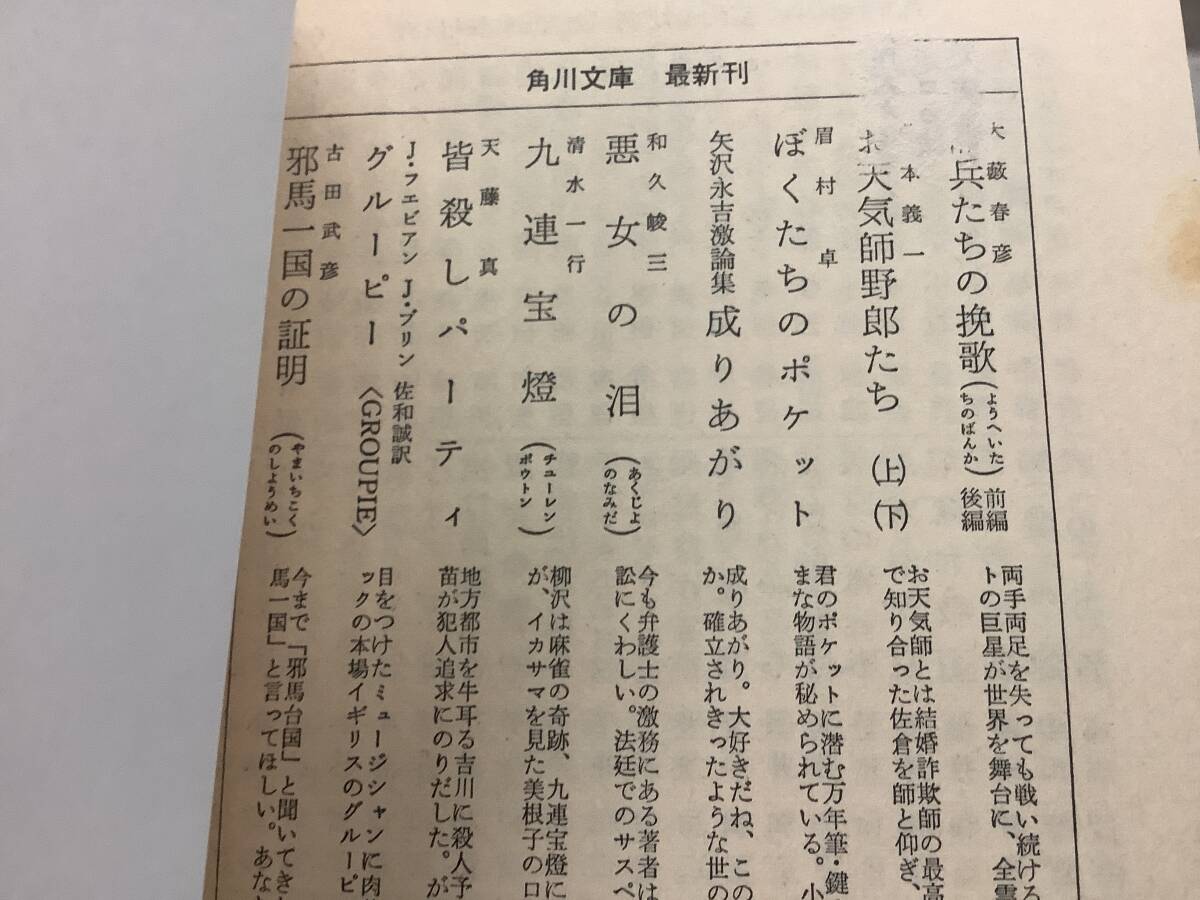 角川文庫　最新刊
大藪春彦
兵たちの挽歌(ようへいたちのばんか) 前編 後編
両手両足を失っても戦い続ける
トの巨星が世界を舞台に、全霊
本義一
お天気師野郎たち (上)(下)
お天気師とは結婚詐欺師の最高
で知り合った佐倉を師と仰ぎ、
眉村卓
ぼくたちのポケット
君のポケットに潜む万年筆・鍵
まな物語が秘められている。小
矢沢永吉激論集 成りあがり
成りあがり。大好きだね、この
か。確立されきったような世の
和久峻三
悪女の泪(あくじょのなみだ)
今も弁護士の激務にある著者は
訟にくわしい。法廷でのサスペ
清水一行
九連宝燈(チューレンポウトン)
柳沢は麻雀の奇跡、九連宝燈に
が、イカサマを見た美根子の口
天藤真
皆殺しパーティ
地方都市を牛耳る吉川に殺人予
苗が犯人追求にのりだした。が
J・フエビアン J・ブリン 佐和誠訳
グルーピー 〈GROUPIE〉
目をつけたミュージシャンに肉
ックの本場イギリスのグルーピ
古田武彦
邪馬一国の証明 (やまいちこくのしようめい)
今まで「邪馬台国」と聞いてき
馬一国」と言ってほしい。あな